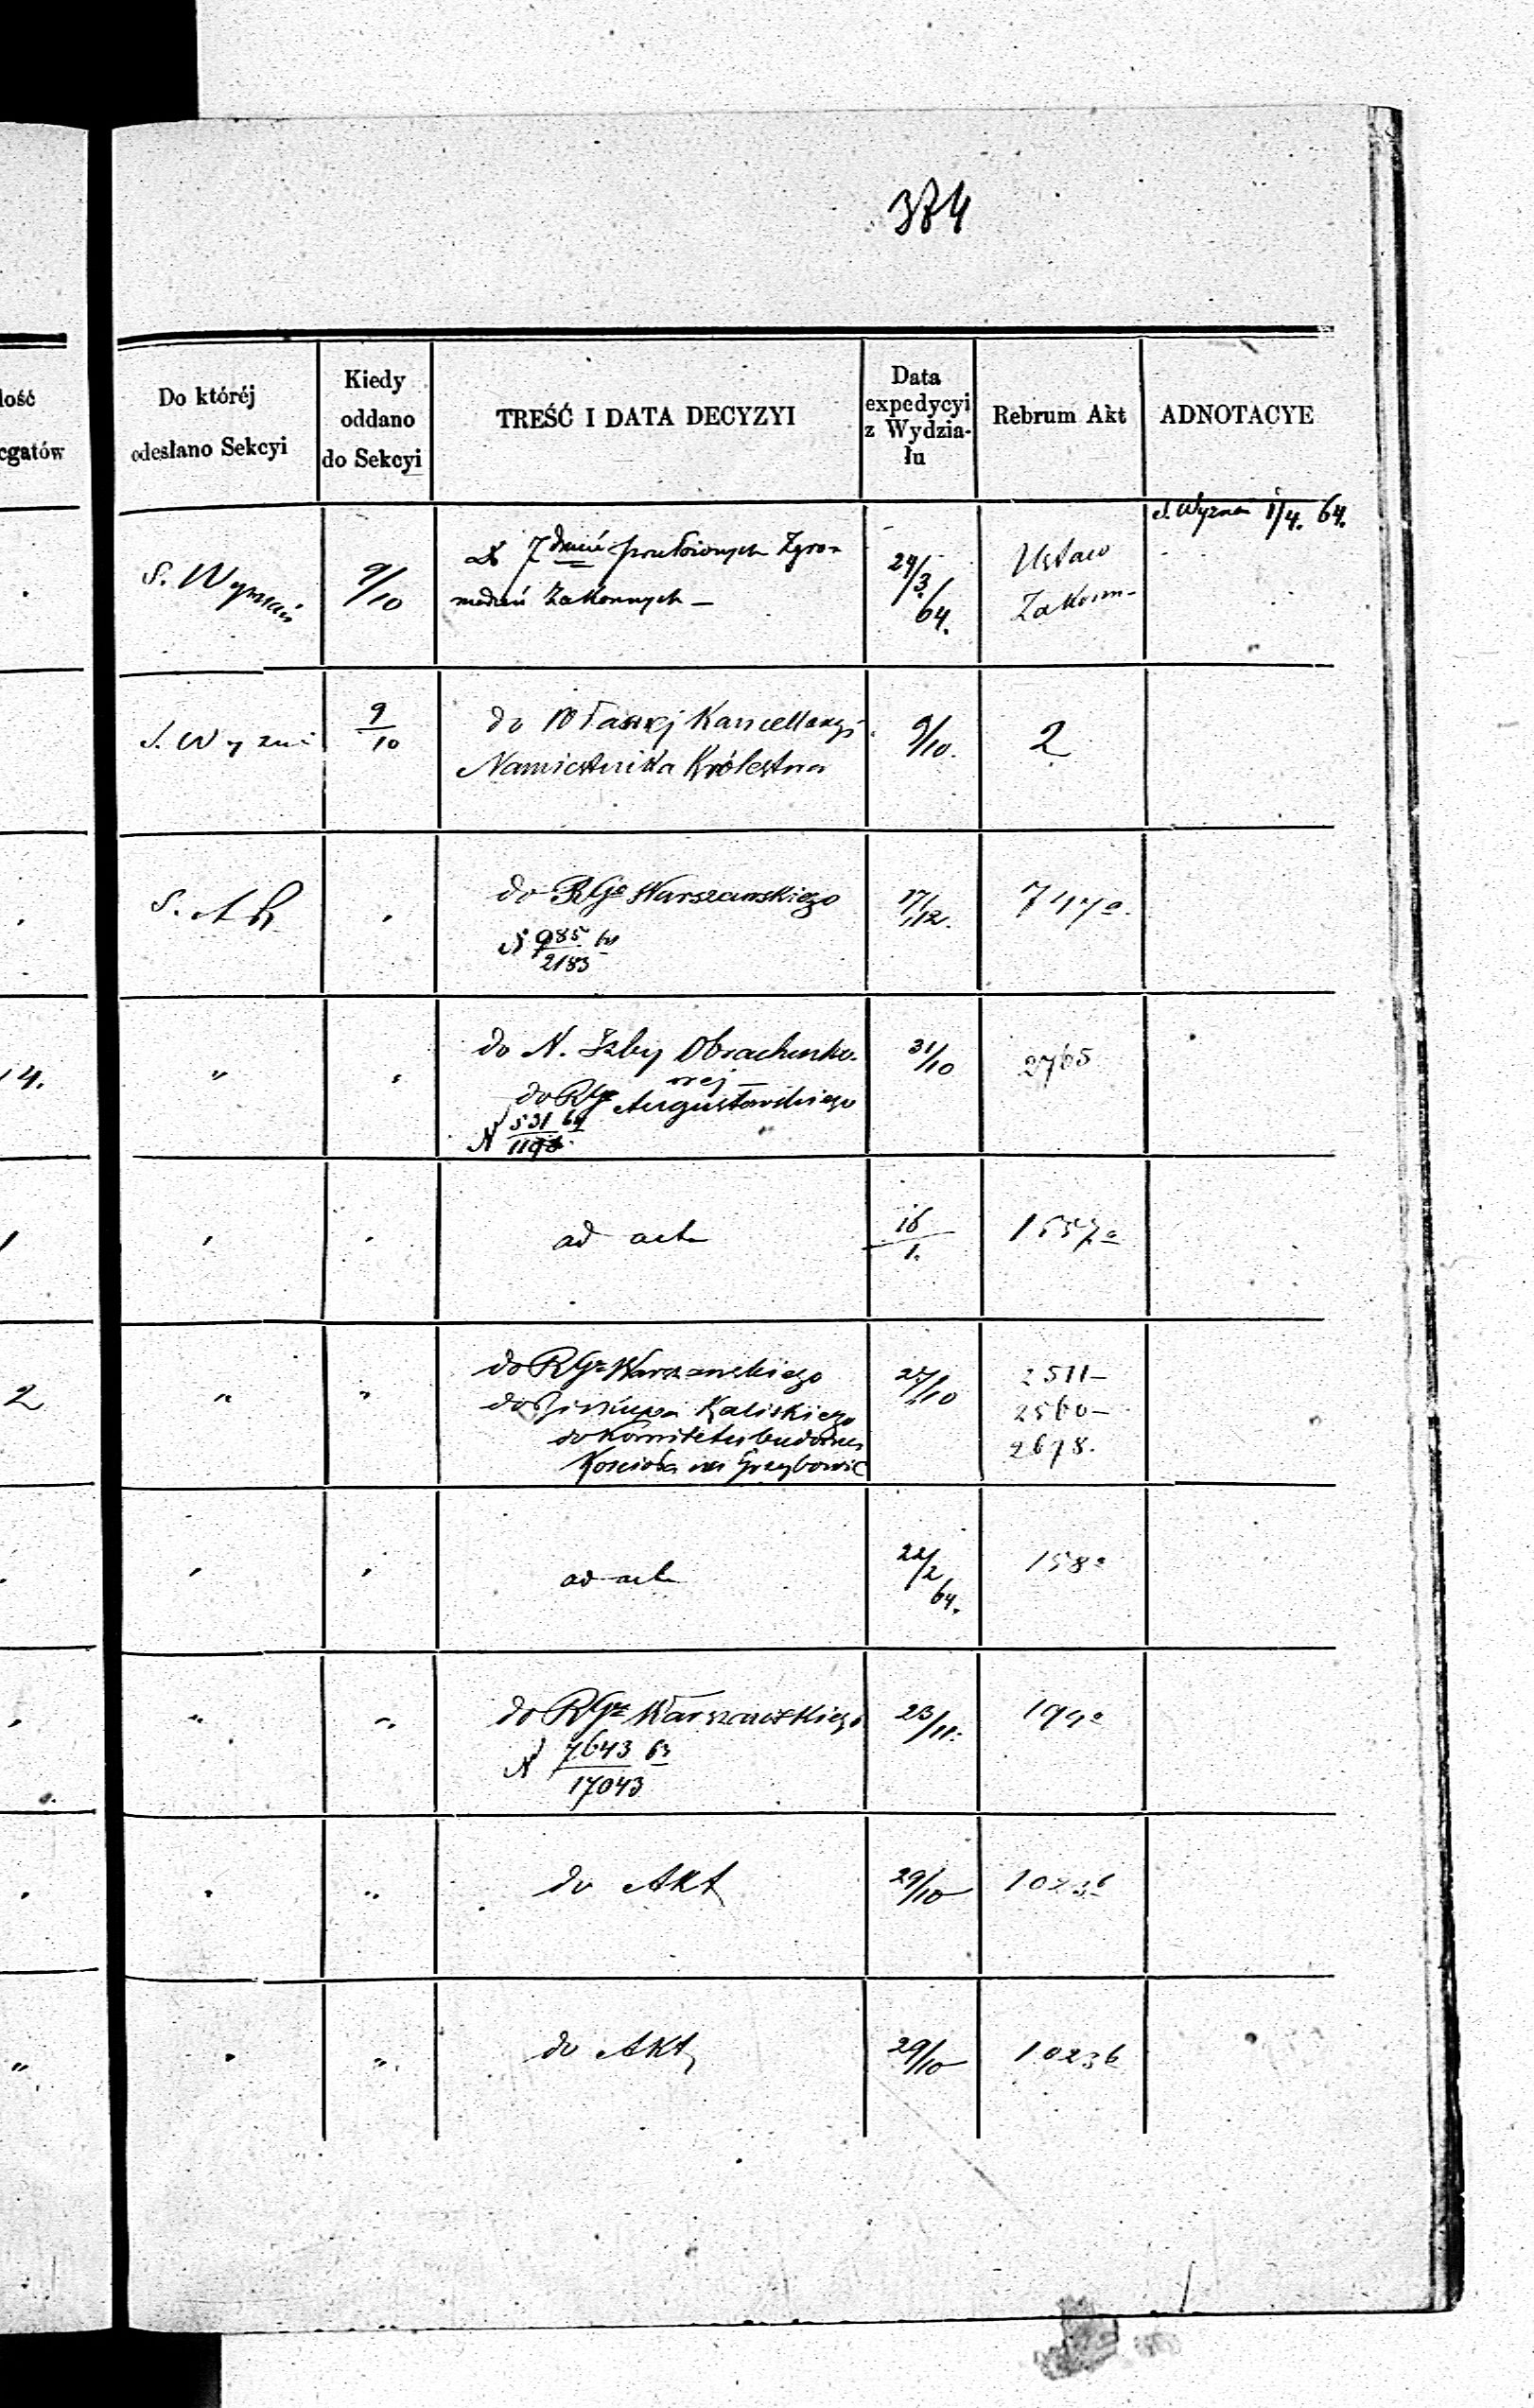 374
lość
cgatów
Do któréj
odesłano Sekcyi
Kiedy
oddano
do Sekcyi
TREŚĆ I DATA DECYZYI
Data
expedycyi
z Wydzia-
łu
Rebrum Akt
ADNOTACYE
S. Wyznań 1/4. 64.
S. Wyznań
9/10
Do 7 przełożonych Zgro-
madzeń Zakonnych —
24/3/64.
Ustaw
Zakonn-
S. Wyznń
9/10
do Własnej Kancellaryi
Namiestnika Królestwa
9/10.
2
S. A K
do RGo Warszawskiego
N 985/2183
17/12.
747a.
14.
"
do N. Izby Obrachunko-
wej —
do RGo Augustowskiego
N 531 64/1198
31/10
2765
1
ad acta
16/1.
1557a
2
"
"
do RGo Warszawskiego
do Biskupa Kaliskiego
do Komitetu budowy
Kościoła na Grzybowie
27/10
2511 —
2560 —
2678.
ad acta
22/2 64.
158a
"
"
do RGo Warszawskiego
N 7643 63/17043
23/11.
199a
do Akt
29/10
10236
"
"
do Akt
29/10
10236